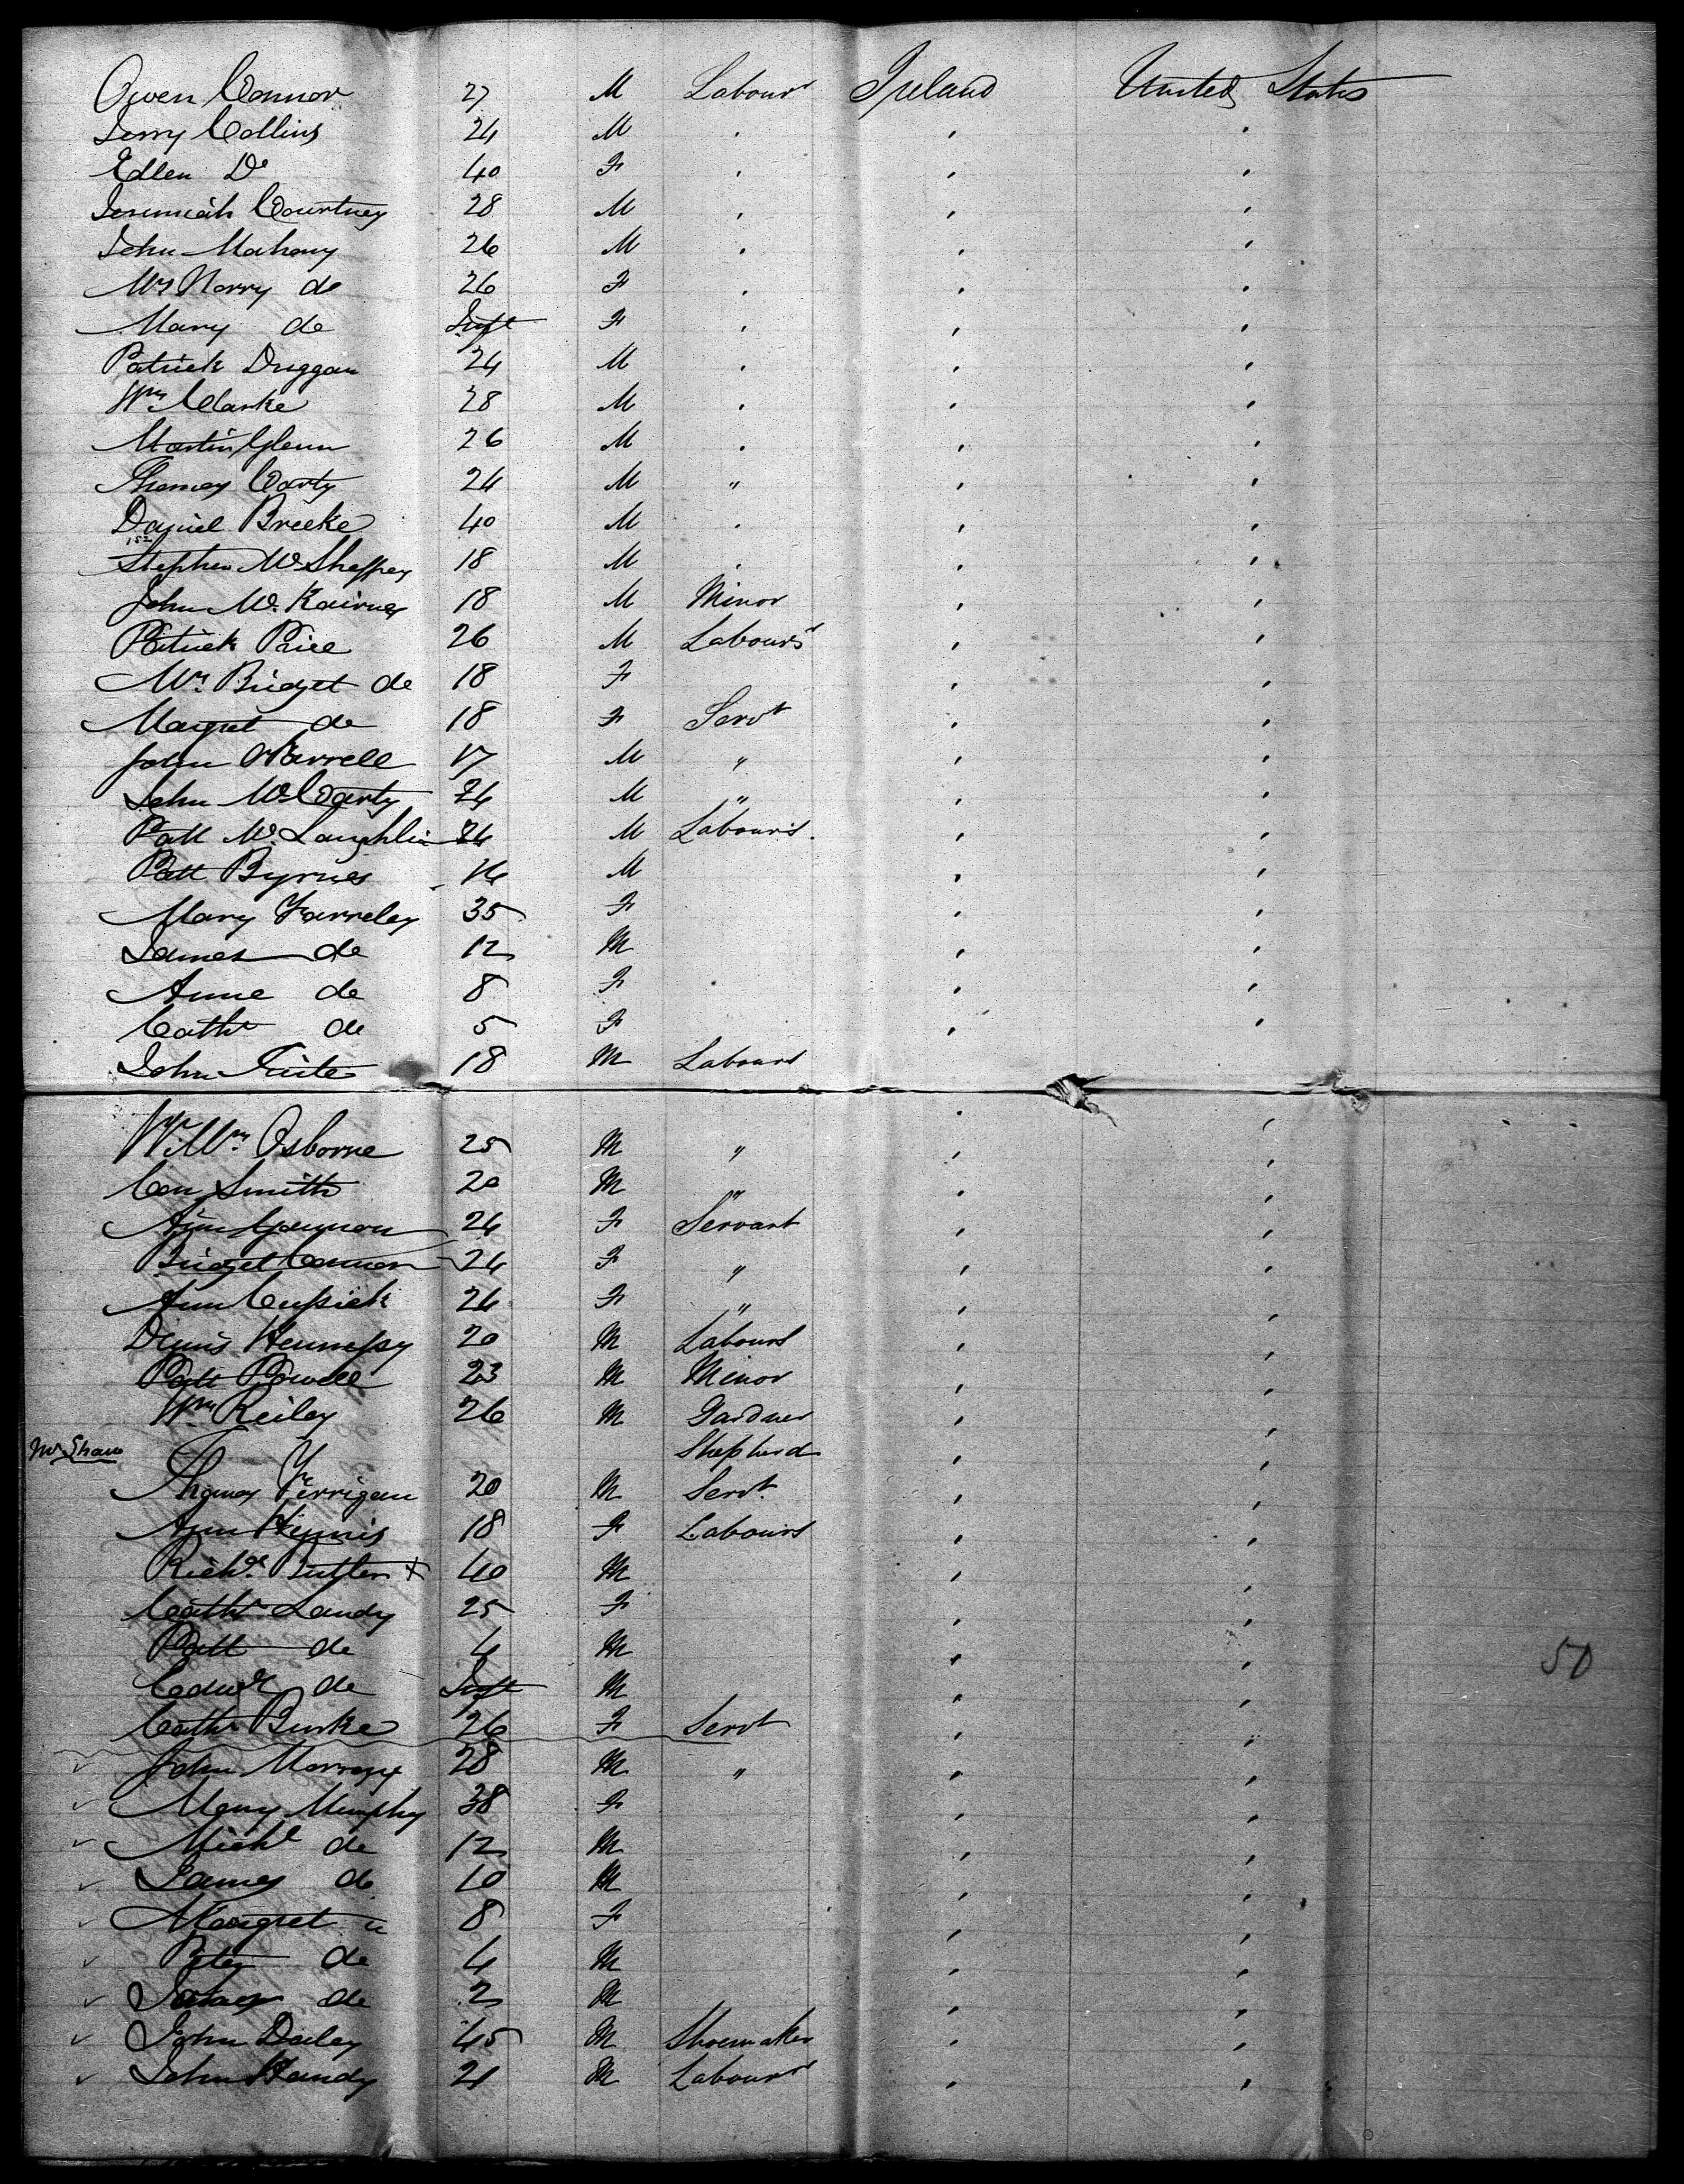 Owen Connor 27 M Labourr Ireland United States
Jerry Collins 24 M " " "
Ellen Do 40 F " " "
Jeremiah Courtney 28 M " " "
John Mahony 26 M " " "
Mrs Norry do 26 F " " "
Mary do Inft F " " "
Patrick Duggan 24 M " " "
Wm Clarke 28 M " " "
Martin Glenn 26 M " " "
Thomas Carty 24 M " " "
Daniel Breeke 40 M " " "
152
Stephen McSheffrey 18 M " " "
John McKairney 18 M Minor " "
Patrick Price 26 M Labours " "
Mrs Bridget do 18 F " "
Margret do 18 F Servt " "
John O'Farrell 17 M " " "
John McCarty 24 M " " "
Patt McLaughlin 24 M Labours " "
Patt Byrnes 16 M " "
Mary Farreley 35 F " "
James do 12 M " "
Anne do 8 F " "
Cathe do 5 F " "
John Tuite 18 M Labours " "
Wm Osborne 25 M " " "
Con Smith 20 M " " "
Ann Gannon 24 F Servant " "
Bridget Connor 24 F " " "
Ann Cusick 24 F " " "
Dinnis Hennessy 20 M Labours " "
Patt Powell 23 M Minor " "
Wm Reiley 26 M Gardner " "
Mr Shaw Shepherd " "
Thomas Ferrigan 20 M Servt " "
Ann Hinnis 18 F Labours " "
Richd Butler x 40 M " "
Cathe Landy 25 F " "
Patt do 4 M " "
Edwd do Inft M " "
Cathe Burke 26 F Servt " "
John Morrosy 28 M " " "
Mary Murphy 38 F " "
Michl do 12 M " "
James do 10 M " "
Margret do 8 F " "
Peter do 4 M " "
do 2 M " "
John Daley 45 M Shoemaker " "
John Handy 21 M Labourr " "
50